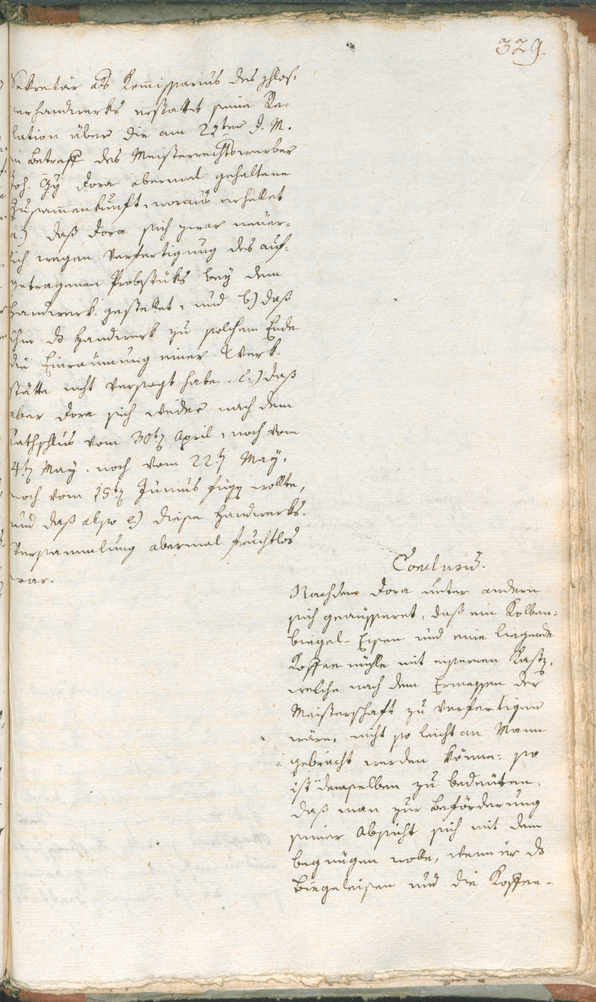 329.
Sekretär als Kommissarius des Schlos-
serhandwerks erstattet seine Re-
lation über die am 29ten d. M.
in Betreff des Meisterrechtswerber
Joh. Dora abermal gehaltene
Zusammenkunft, woraus erhellet
a.) daß Dora sich zwar neuer-
lich wegen Verfertigung des auf-
getragenen Probstüks bey dem
Handwerk gestellet, und b.) daß
ihm ds Handwerk zu solchem Ende
die Einräumung einer Werk-
stätte nicht versagt habe. c.) daß
aber Dora sich weder nach dem
Rathschlus vom 30ten April, noch vom
4ten May, noch vom 22ten May,
noch vom 15ten Junius fügen wollte,
und daß also diese Handwerks-
versammlung abermal fruchtlos
war.
Conclusum.
Nachdem Dora unter andern
sich geäusseret, daß ein Kolben-
biegel-Eisen und eine liegende
Koffeemühle mit eisernem Kasten,
welche nach dem Ermessen der
Meisterschaft zu verfertigen
wäre, nicht so leicht an Mann
gebracht werden könne: so
ist demselben zu bedeuten,
daß man zur Beförderung
seiner Absicht sich mit dem
begnügen wolle, wenn er ds
Biegeleisen und die Koffee-